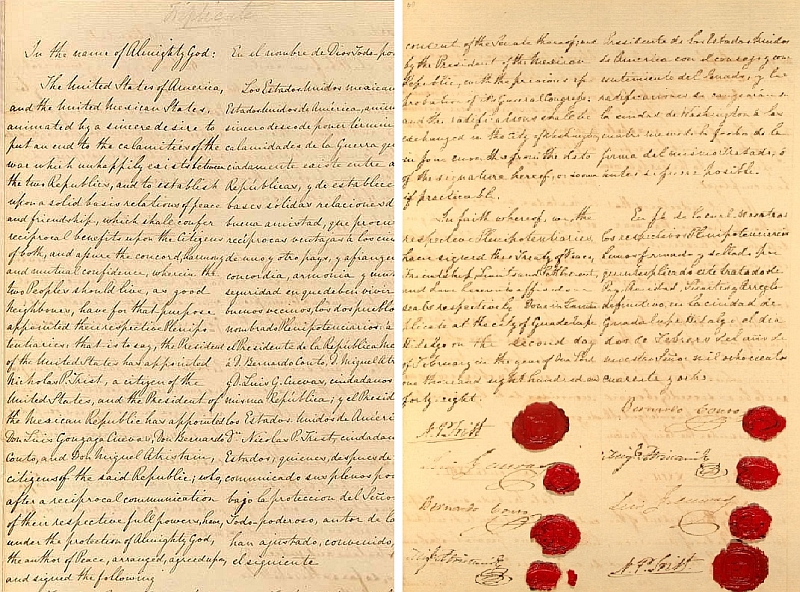 Triplicate
In the name of Almighty God:
The United States of America,
and the United Mexican States,
animated by a sincere desire to
put an end to the calamities of the
war which unhappily exists between
the two Republics, and to establish
upon a solid basis relations of peace
and friendship, which shall confer
reciprocal benefits upon the citizens
of both, and assure the concord, harmony
and mutual confidence, wherein the
two Peoples should live, as good
neighbours, have for that purpose
appointed their respective Plenipo-
tentiaries: that is to say, the President
of the United States has appointed
Nicholas P. Trist, a citizen of the
United States, and the President of
the Mexican Republic has appointed
Don Luis Gonzaga Cuevas, Don Bernardo
Couto, and Don Miguel Atristain,
citizens of the said Republic; who,
after a reciprocal communication
of their respective full powers, have,
under the protection of Almighty God,
the author of Peace, arranged, agreed upon,
and signed the following
En el nombre de Dios Todo-po
Los Estados Unidos mexican
Estados Unidos de América, anim
sincero deseo de poner términ
calamidades de la Guerra qu
ciadamente existe entre a
Repúblicas, y de establece
bases sólidas relaciones d
buena amistad, que procu
reciprocas ventajas á los ciu
de uno y otro pays, y afiancen
concordia, armonía y mut
seguridad en que deben vivir
buenos vecinos, los dos pueblo
nombrado Plenipotenciarios: á
el Presidente de la República Me
á D. Bernardo Couto, D. Miguel Atr
y D. Luis G. Cuevas, ciudadanos
misma República; y el Presid
los Estados Unidos de Améri
D. Nicolas P. Trist, ciudadan
Estados; quienes, despues de
comunicado sus plenos po
bajo la proteccion del Seño
Todo-poderoso, autor de la
han ajustado, convenido,
el siguiente
consent of the Senate thereof; and
by the President of the Mexican
Republic, with the previous ap
probation of its General Congress;
and the ratifications shall be
exchanged in the City of Washington
in four months from the date
of the signature hereof, or sooner
if practicable.
In faith whereof, we, the
respective Plenipotentiaries
have signed this Treaty of Peace,
Friendship, Limits and Settlement,
and have hereunto affixed our
seals respectively. Done in Quin
plicate at the city of Guadalupe
Hidalgo on the second day
of February in the year of Our Lord
one thousand eight hundred and
forty eight.
Presidente de los Estados Unidos
de America con el consejo y con
sentimiento del Senado, y las
ratificaciones se cangearán en
la ciudad de Washington á los
cuatro meses de la fecha de la
firma del mismo Tratado, ó
antes si fuere posible.
En fé de lo cual, nosotros
los respectivos Plenipotenciarios
hemos firmado y sellado por
quintuplicado este tratado de
Paz, Amistad, Límites y Arreglo
definitivo, en la ciudad de
Guadalupe Hidalgo el dia
dos de Febrero del año de
nuestro Señor mil ochocientos
cuarenta y ocho.
N. P. Trist
Luis G. Cuevas
Bernardo Couto
Migl Atristain
Bernardo Couto
Migl Atristain
Luis G. Cuevas
N. P. Trist